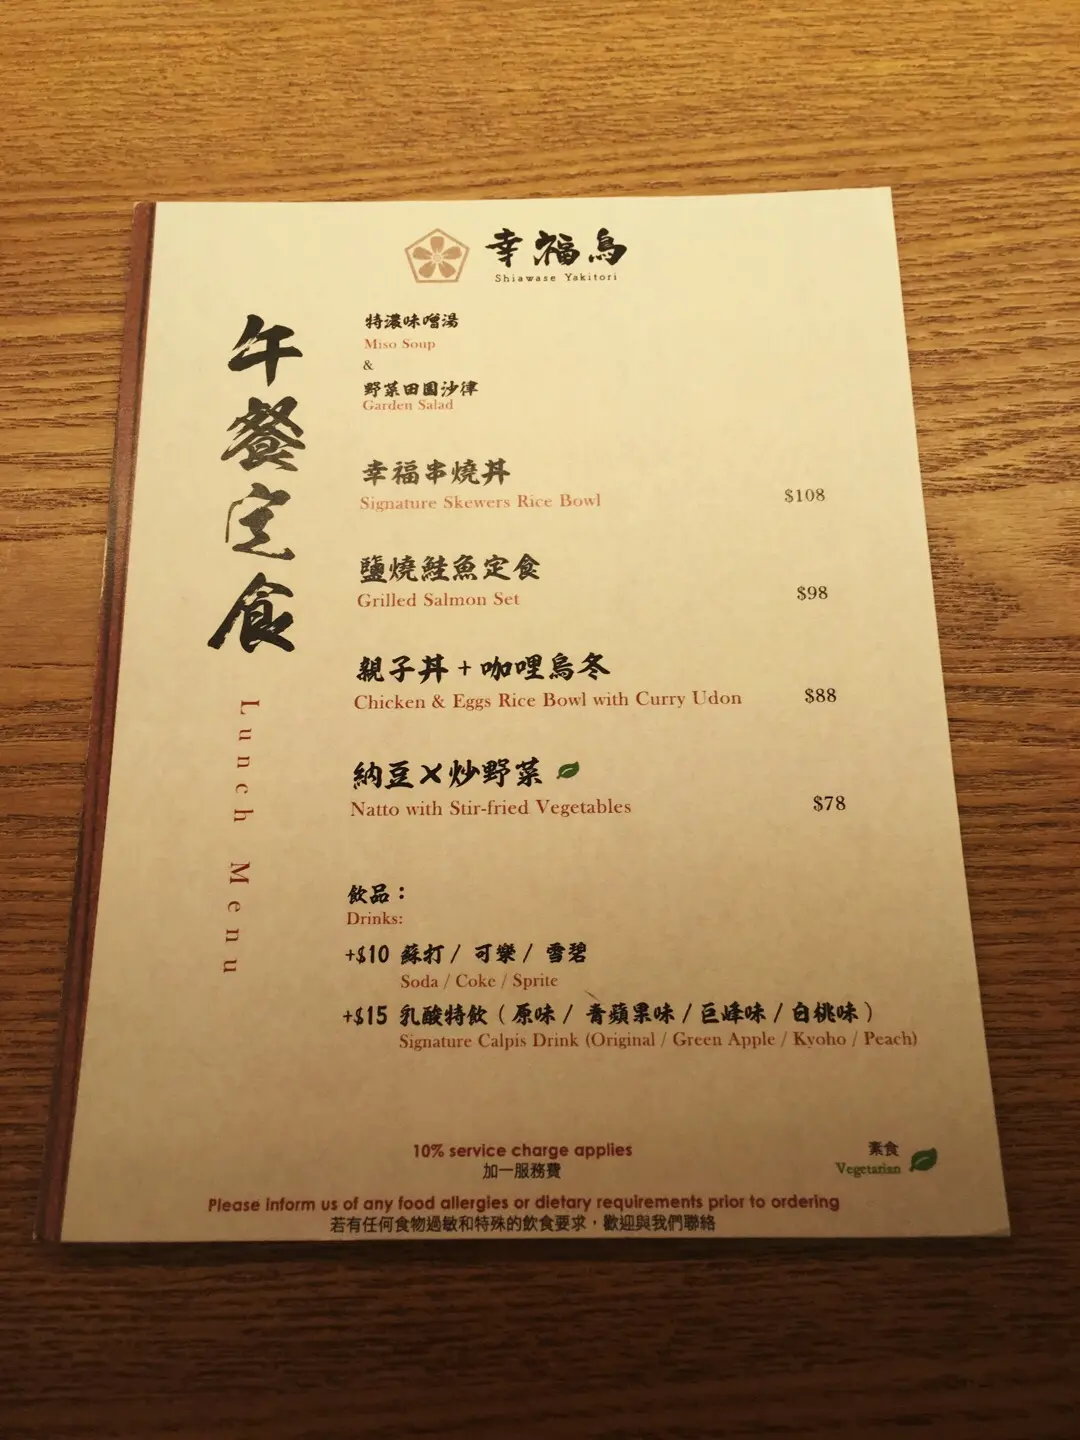 幸福鳥
Shiawase Yakitori
午餐定食
Lunch Menu
特濃味噌湯
Miso Soup
&
野菜田園沙律
Garden Salad
幸福串燒丼
Signature Skewers Rice Bowl
$108
鹽燒鮭魚定食
Grilled Salmon Set
$98
親子丼+咖哩烏冬
Chicken & Eggs Rice Bowl with Curry Udon
$88
納豆×炒野菜
Natto with Stir-fried Vegetables
$78
飲品：
Drinks:
+$10 蘇打 / 可樂 / 雪碧
Soda / Coke / Sprite
+$15 乳酸特飲（原味 / 青蘋果味 / 巨峰味 / 白桃味）
Signature Calpis Drink (Original / Green Apple / Kyoho / Peach)
10% service charge applies
加一服務費
素食
Vegetarian
Please inform us of any food allergies or dietary requirements prior to ordering
若有任何食物過敏和特殊的飲食要求，歡迎與我們聯絡